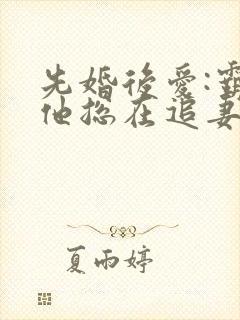 先婚後愛:
他總在追妻
夏雨婷